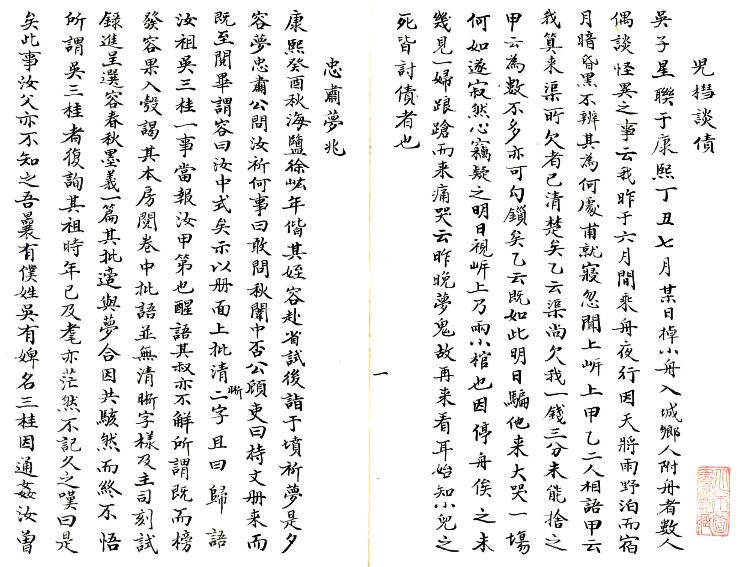 児檔談債
吳子星聯于康熙丁丑七月某日掉小舟入城鄉人附舟者數人
偶談怪異之事云我昨于六月間乘舟夜行因天將雨野泊而宿
月暗昏黑不辨其為何處甫就寢忽聞上岍上甲乙二人相語甲云
我算来渠所欠者已清楚矣乙云渠尚欠我一錢三分未能捨之
甲云為數不多亦可勾鎖矣乙云既如此明日騙他来大哭一場
何如遂寂然心竊疑之明日視岍上乃兩小棺也因停舟俟之未
幾見一婦踉蹌而来痛哭云昨晚夢鬼故再来看耳始知小兒之
死皆討債者也
一
忠肅夢兆
康熙癸酉秋海鹽徐岦年偕其姪容赴省試後詣于墳祈夢是夕
容夢忠肅公問汝祈何事曰敢問秋闈中否公顧吏曰持文册来而
既至閱畢謂容曰汝中式矣示以册面上批清晰二字且曰歸語
汝祖吳三桂一事當報汝甲第也醒語其叔亦不解所謂既而榜
發容果入彀謁其本房閱卷中批語並無清晰字樣及主司刻試
錄進呈選容春秋墨義一篇其批遼與夢合因共駭然而終不悟
所謂吳三桂者復詢其祖時年已及耄亦茫然不記久之嘆曰是
矣此事汝父亦不知之吾曩有僕姓吳有婢名三桂因通姦汝曾